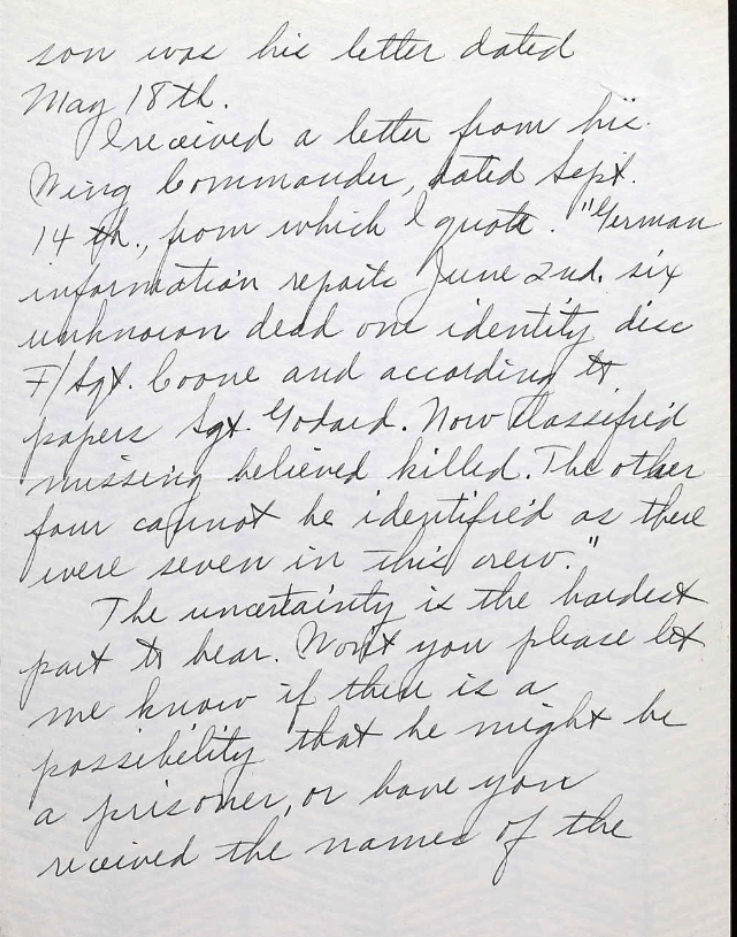 son was his letter dated
May 18th.
I received a letter from his
Wing Commander, dated Sept.
14 th., from which I quote. "German
information reports June 2nd. six
unknown dead one identity disc
F/Sgt. Coone and according to
papers Sgt. Godard. Now Classified
missing believed killed. The other
four cannot be identified as there
were seven in this crew."
The uncertainty is the hardest
part to bear. Won't you please let
me know if there is a
possibility that he might be
a prisoner, or have you
received the names of the